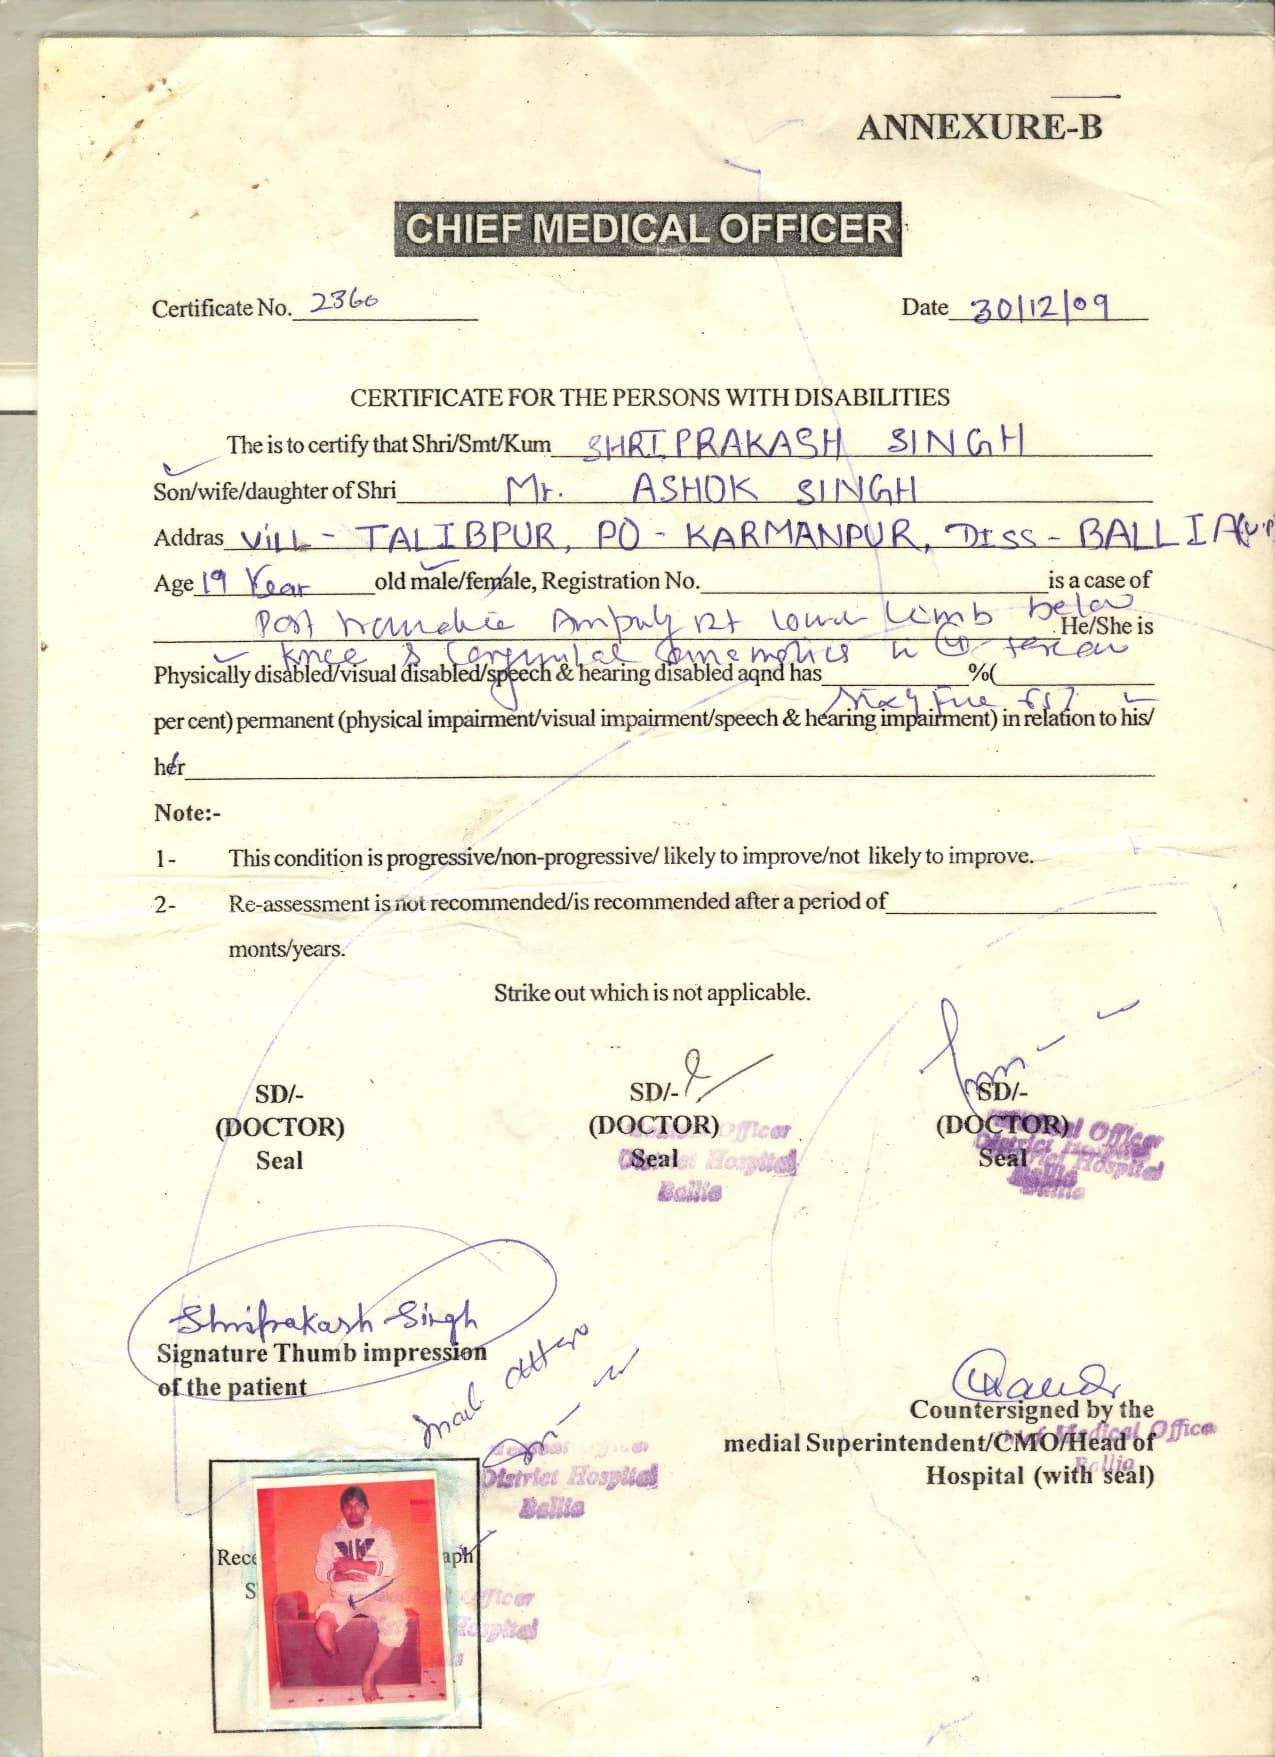 ANNEXURE-B
CHIEF MEDICAL OFFICER
Certificate No. 2360
Date 30/12/09
CERTIFICATE FOR THE PERSONS WITH DISABILITIES
The is to certify that Shri/Smt/Kum SHRIPRAKASH SINGH
Son/wife/daughter of Shri Mr. ASHOK SINGH
Addras ViLL - TALIBPUR, PO - KARMANPUR, DISS - BALLIA (U.P
Age 19 Year old male/female, Registration No. is a case of
Post Lower Limb below He/She is
Knee &
Physically disabled/visual disabled/speech & hearing disabled aqnd has %(
per cent) permanent (physical impairment/visual impairment/speech & hearing impairment) in relation to his/
her
Note:-
1- This condition is progressive/non-progressive/ likely to improve/not likely to improve.
2- Re-assessment is not recommended/is recommended after a period of
monts/years.
Strike out which is not applicable.
SD/- SD/- SD/-
(DOCTOR) (DOCTOR) (DOCTOR)
Seal Seal Seal
Officer
District Hospital
Ballia
Officer
District Hospital
Ballia
Shriprakash Singh
Signature Thumb impression
of the patient
Countersigned by the
medial Superintendent/CMO/Head of
Hospital (with seal)
Medical Office
Ballia
District Hospital
Ballia
Rece aph
S
Officer
Hospital